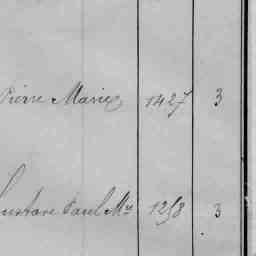 Pierre Marie 1427 3
Gustave Paul Mie 1258 3